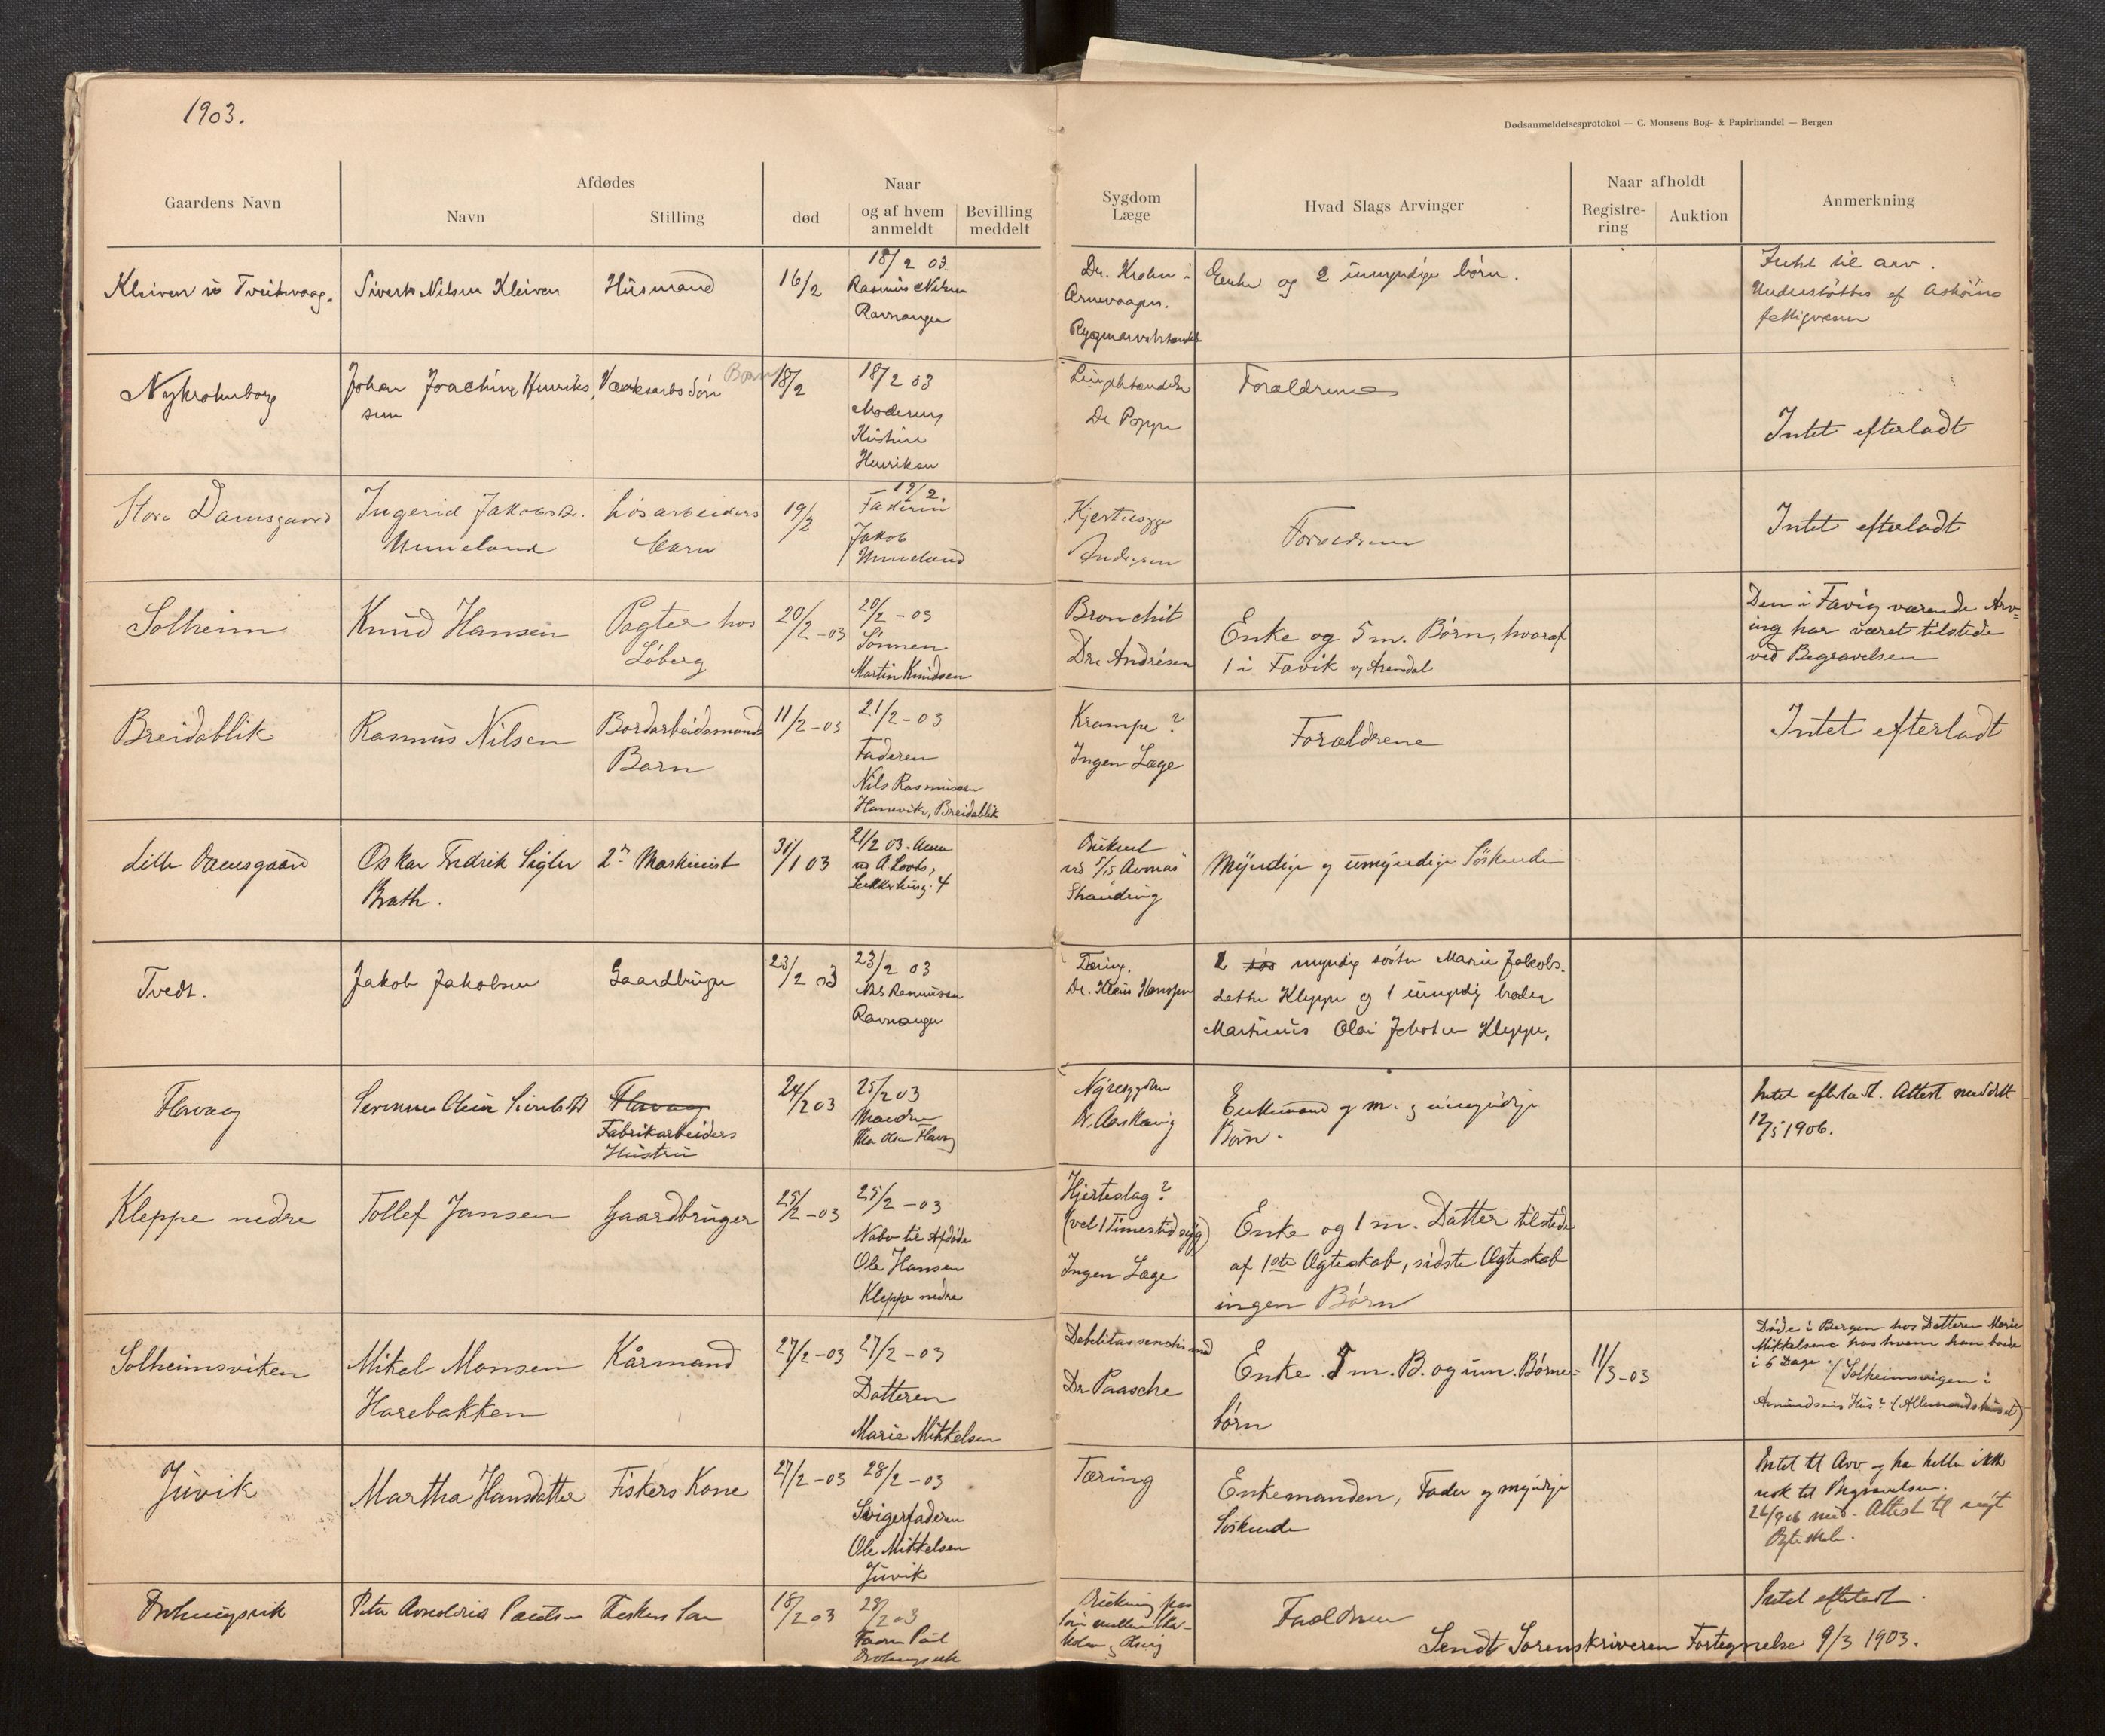 1903.
Dødsanmeldelsesprotokol — C. Monsens Bog- & Papirhandel — Bergen
Gaardens Navn
Afdødes
Navn
Stilling
Naar
død
og af hvem
anmeldt
Bevilling
meddelt
Sygdom
Læge
Hvad Slags Arvinger
Naar afholdt
Registre-
ring
Auktion
Anmerkning
Kleiven
Sivert Nilsen Kleiven
Husmand
16/2
18/2 03
Rasmus Nilsen
Ravnanger
Dr. Krohn i
Arnevaagen.
Enke og 2 umyndige børn.
Intet til arv.
Understøttes af Askøens
fattigvæsen
Nykrohnborg
Johan Joachim Henrik-
sen
Søn
Barn
18/2
18/2 03
Moderen
Kristine
Henriksen
Dr Poppe
Forældrene
Intet efterladt
Store Damsgaard
Ingerid Jakobsdr.
Unneland
Løsarbeiders
Barn
19/2
19/2.
Faderen
Jakob
Unneland
Hjertesyge
Andersen
Forældrene
Intet efterladt
Solheim
Knud Hansen
Pagter hos
Løberg
20/2-03
20/2-03
Sønnen
Martin Knudsen
Bronchit
Dr. Andrésen
Enke og 5 m. Børn, hvoraf
1 i Fævik og Arendal
Den i Fævig værende Arv=
ing har været tilstede
ved Begravelsen
Breidablik
Rasmus Nilsen
Bordarbeidsmands
Barn
11/2-03
21/2-03
Faderen
Nils Rasmussen
Hanevik, Breidablik
Krampe?
Ingen Læge
Forældrene
Intet efterladt
Lille Damsgaard
Oskar Fredrik Sigler
Brath.
2den Maskinist
31/1 03
21/2 03.
Druknet
Stranding
Myndige og umyndige Søskende
Tvedt.
Jakob Jakobsen
Gaardbruger
23/2 03
23/2 03
Nils Rasmussen
Ravnanger
Tæring.
Dr. Klaus Hanssen
myndig søster Marie Jakobs-
datter Kleppe og 1 umyndig broder
Martinus Olai Kleppe.
Flavaag
Serenne Oline
Flavaag
Fabrikarbeiders
Hustru
24/2 03
25/2 03
Manden
Flavaag
Nyresygdom
Enkemand og m. og umyndige
Børn.
Intet efterladt. Attest meddelt
12/5 1906.
Kleppe nedre
Tollef Jansen
Gaardbruger
25/2-03
25/2-03
Nabo til Afdøde
Ole Hansen
Kleppe nedre
Hjerteslag?
(vel 1 Times tid syg)
Ingen Læge
Enke og 1 m. Datter tilstede
af 1ste Ægteskab, sidste Ægteskab
ingen Børn
Solheimsviken
Mikal Monsen
Harebakken
Kårmand
27/2-03
27/2-03
Datteren
Marie Mikkelsen
Debelitas senilis
Dr Paasche
Enke 5 m. B. og um. Børne=
børn
11/3-03
Døde i Bergen hos Datteren Marie
Mikkelsen hos hvem han boede
i 6 Dage./. Solheimsvigen i
Amundsens Hus? (Allemandshuset)
Juvik
Martha Hansdatter
Fiskers Kone
27/2-03
28/2-03
Svigerfaderen
Ole Mikkelsen
Juvik
Tæring
Enkemanden, Fader og myndige
Søskende
Intet til Arv og har heller ikke
nok til Begravelsen.
Attest til nyt
Ægteskab.
Peter
Fiskers Søn
18/2 03
28/2 03
Forældrene
Intet efterladt.
Sendt Sorenskriveren Fortegnelse 9/3 1903.